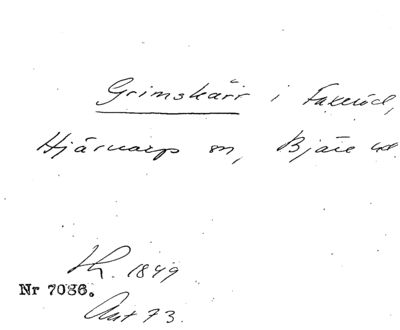 Grimskärr i Fakeröd,
Hjärnarps sn, Bjäre hd
Th. 1849
Nr 7086.
Ant 73.